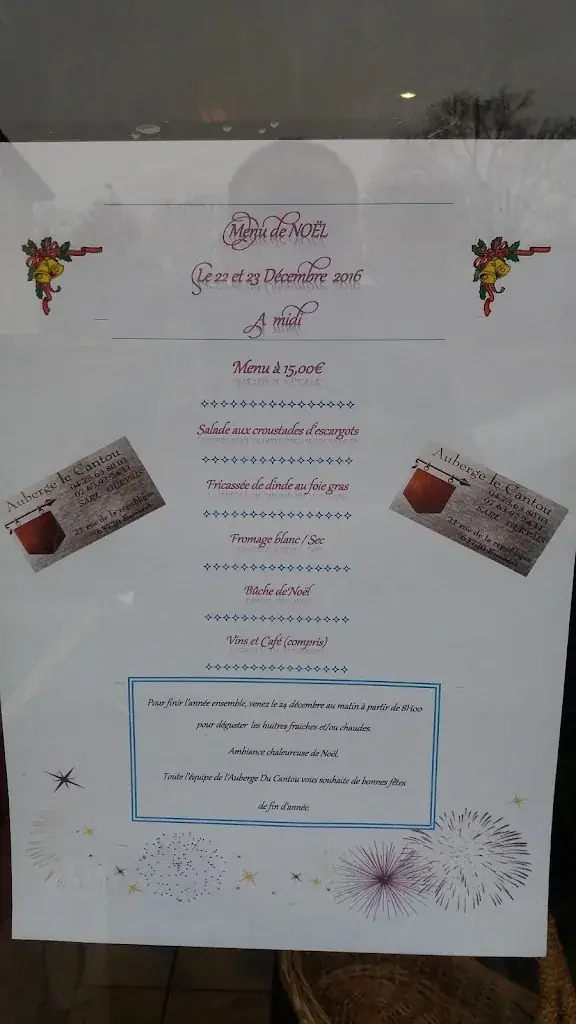 Menu de NOËL
Le 22 et 23 Décembre 2016
A midi
Menu à 15,00€
Salade aux croustades d'escargots
Fricassée de dinde au foie gras
Fromage blanc / Sec
Bûche de Noël
Vins et Café (compris)
Pour finir l'année ensemble, venez le 24 décembre au matin à partir de 8H00
pour déguster les huitres fraiches et/ou chaudes.
Ambiance chaleureuse de Noël.
Toute l'équipe de l'Auberge Du Cantou vous souhaite de bonnes fêtes
de fin d'année.
Auberge le Cantou
04.73.63.80.03
SARL
21 rue de la république
Auberge le Cantou
04.73.63.80.03
SARL
21 rue de la république